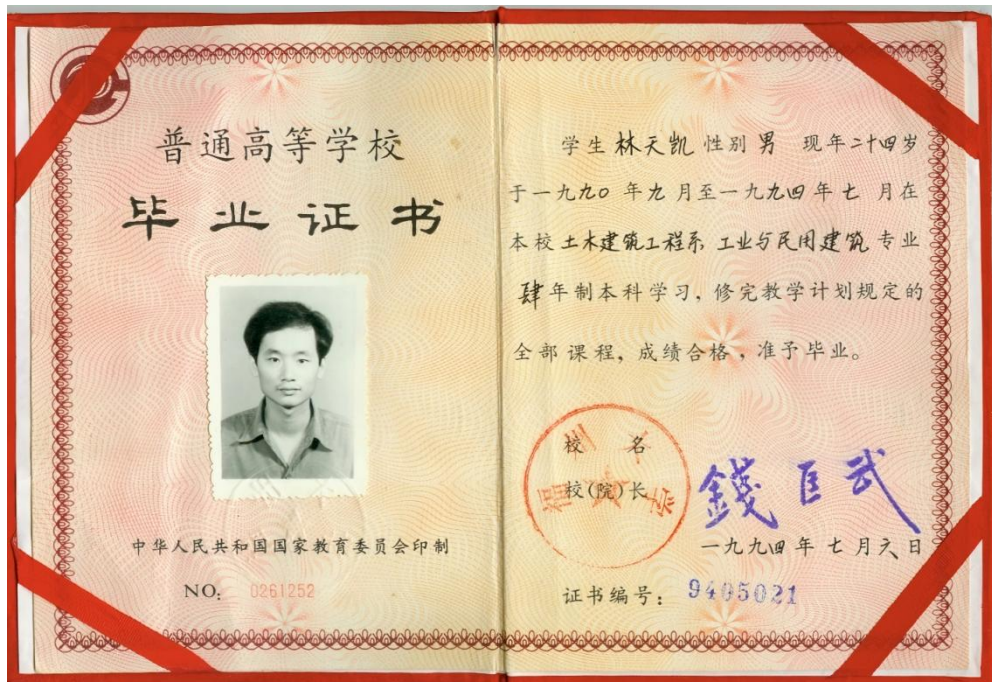 普通高等学校
毕业证书
中华人民共和国国家教育委员会印制
NO: 0261252
学生 林天凯 性别 男 现年二十四岁
于一九九〇年九月至一九九四年七月在
本校土木建筑工程系 工业与民用建筑 专业
肆年制本科学习，修完教学计划规定的
全部课程，成绩合格，准予毕业。
校 名
校(院)长
一九九四年七月六日
证书编号： 9405021